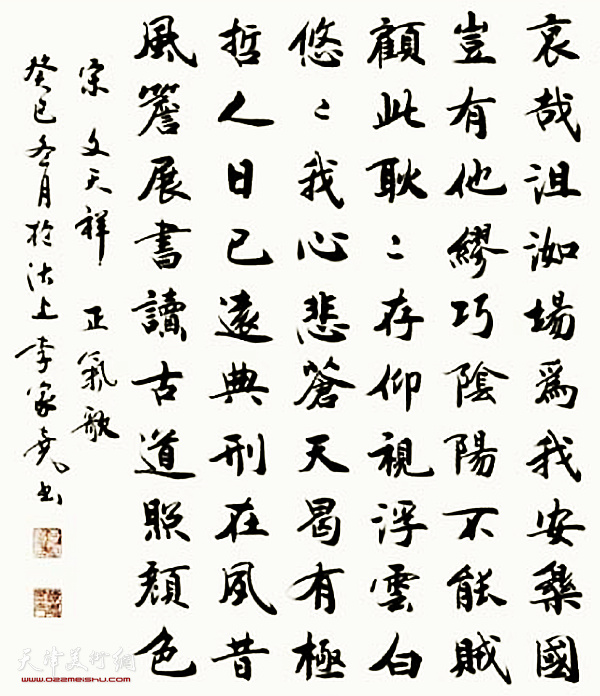 哀哉沮洳場爲我安樂國
豈有他繆巧陰陽不能賊
顧此耿〻存仰視浮雲白
悠〻我心悲蒼天曷有極
哲人日已遠典刑在夙昔
風簷展書讀古道照顏色
宋文天祥 正氣歌
癸巳冬月於沽上李家堯書
天津美術網
www.022meishu.com